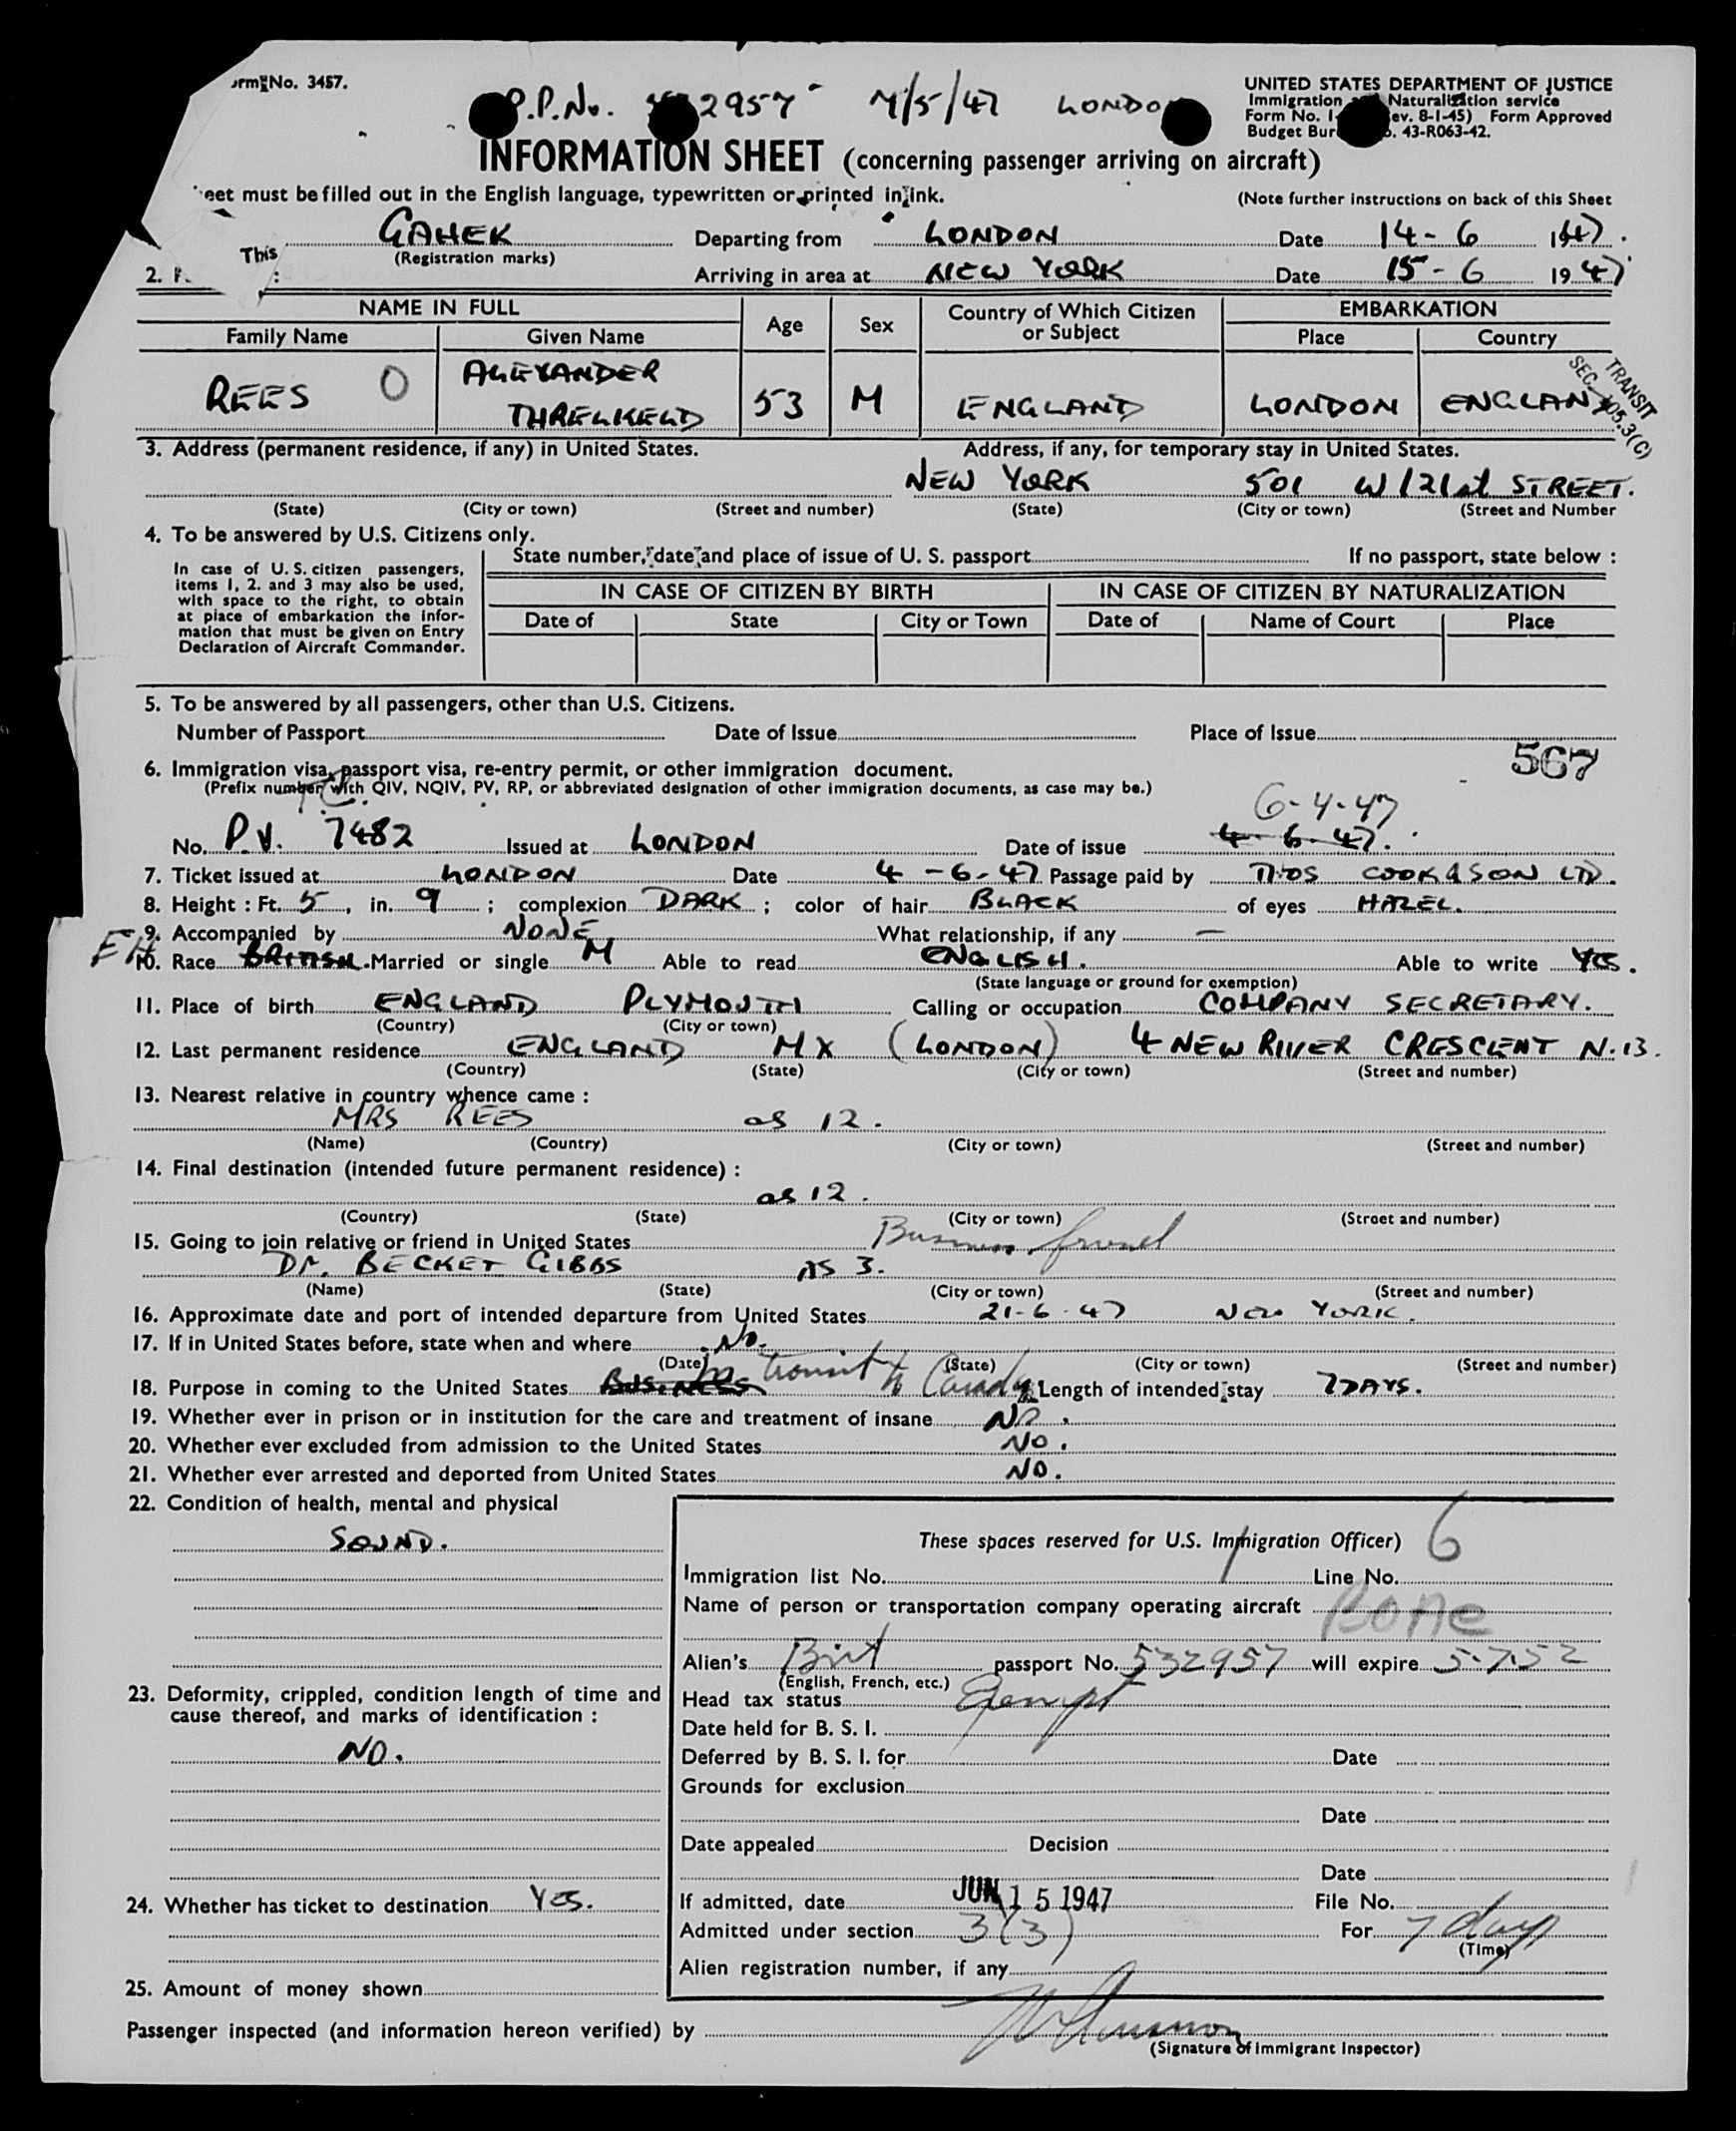 No. 3457.
P.P. No. 2957 7/5/47 LONDON
UNITED STATES DEPARTMENT OF JUSTICE
Immigration Naturalization service
Form No. 1- ev. 8-1-45) Form Approved
Budget Bur . 43-R063-42.
INFORMATION SHEET (concerning passenger arriving on aircraft)
eet must be filled out in the English language, typewritten or printed in ink.
(Note further instructions on back of this Sheet
This GAHEK Departing from LONDON Date 14-6 1947.
(Registration marks)
2. : Arriving in area at NEW YORK Date 15-6 1947
NAME IN FULL Age Sex Country of Which Citizen or Subject EMBARKATION
Family Name Given Name Place Country
REES O ALEXANDER THRELKELD 53 M ENGLAND LONDON ENGLAND
TRANSIT
SEC. 105.3(C)
3. Address (permanent residence, if any) in United States. Address, if any, for temporary stay in United States.
NEW YORK 501 W 121st STREET.
(State) (City or town) (Street and number) (State) (City or town) (Street and Number
4. To be answered by U.S. Citizens only.
State number, date and place of issue of U. S. passport If no passport, state below :
In case of U. S. citizen passengers,
items 1, 2. and 3 may also be used,
with space to the right, to obtain
at place of embarkation the infor-
mation that must be given on Entry
Declaration of Aircraft Commander.
IN CASE OF CITIZEN BY BIRTH IN CASE OF CITIZEN BY NATURALIZATION
Date of State City or Town Date of Name of Court Place
5. To be answered by all passengers, other than U.S. Citizens.
Number of Passport Date of Issue Place of Issue
567
6. Immigration visa, passport visa, re-entry permit, or other immigration document.
(Prefix number with QIV, NQIV, PV, RP, or abbreviated designation of other immigration documents, as case may be.)
6-4-47
No. P.V. 7482 Issued at LONDON Date of issue 4-6-47.
7. Ticket issued at LONDON Date 4-6-47 Passage paid by THOS COOK & SON LTD.
8. Height : Ft. 5, in. 9 ; complexion DARK ; color of hair BLACK of eyes HAZEL.
9. Accompanied by NONE What relationship, if any —
10. Race BRITISH Married or single M Able to read ENGLISH. Able to write YES.
(State language or ground for exemption)
11. Place of birth ENGLAND PLYMOUTH Calling or occupation COMPANY SECRETARY.
(Country) (City or town)
12. Last permanent residence ENGLAND MX (LONDON) 4 NEW RIVER CRESCENT N.13.
(Country) (State) (City or town) (Street and number)
13. Nearest relative in country whence came :
MRS REES as 12.
(Name) (Country) (City or town) (Street and number)
14. Final destination (intended future permanent residence) :
as 12.
(Country) (State) (City or town) (Street and number)
15. Going to join relative or friend in United States Business friend
DR. BECKET GIBBS AS 3.
(Name) (State) (City or town) (Street and number)
16. Approximate date and port of intended departure from United States 21-6-47 NEW YORK.
17. If in United States before, state when and where No.
(Date) (State) (City or town) (Street and number)
18. Purpose in coming to the United States BUSINESS In transit to Canada Length of intended stay 7 DAYS.
19. Whether ever in prison or in institution for the care and treatment of insane NO.
20. Whether ever excluded from admission to the United States NO.
21. Whether ever arrested and deported from United States NO.
22. Condition of health, mental and physical
SOUND.
These spaces reserved for U.S. Immigration Officer) 6
Immigration list No. 1 Line No.
Name of person or transportation company operating aircraft
Alien's Brit passport No. 532957 will expire 5-7-52
(English, French, etc.)
23. Deformity, crippled, condition length of time and
cause thereof, and marks of identification :
NO.
Head tax status Exempt
Date held for B. S. I.
Deferred by B. S. I. for Date
Grounds for exclusion
Date
Date appealed Decision
Date
24. Whether has ticket to destination YES.
If admitted, date JUN 15 1947 File No.
Admitted under section 3(3) For 7 days
(Time)
Alien registration number, if any
25. Amount of money shown
Passenger inspected (and information hereon verified) by
(Signature of Immigrant Inspector)